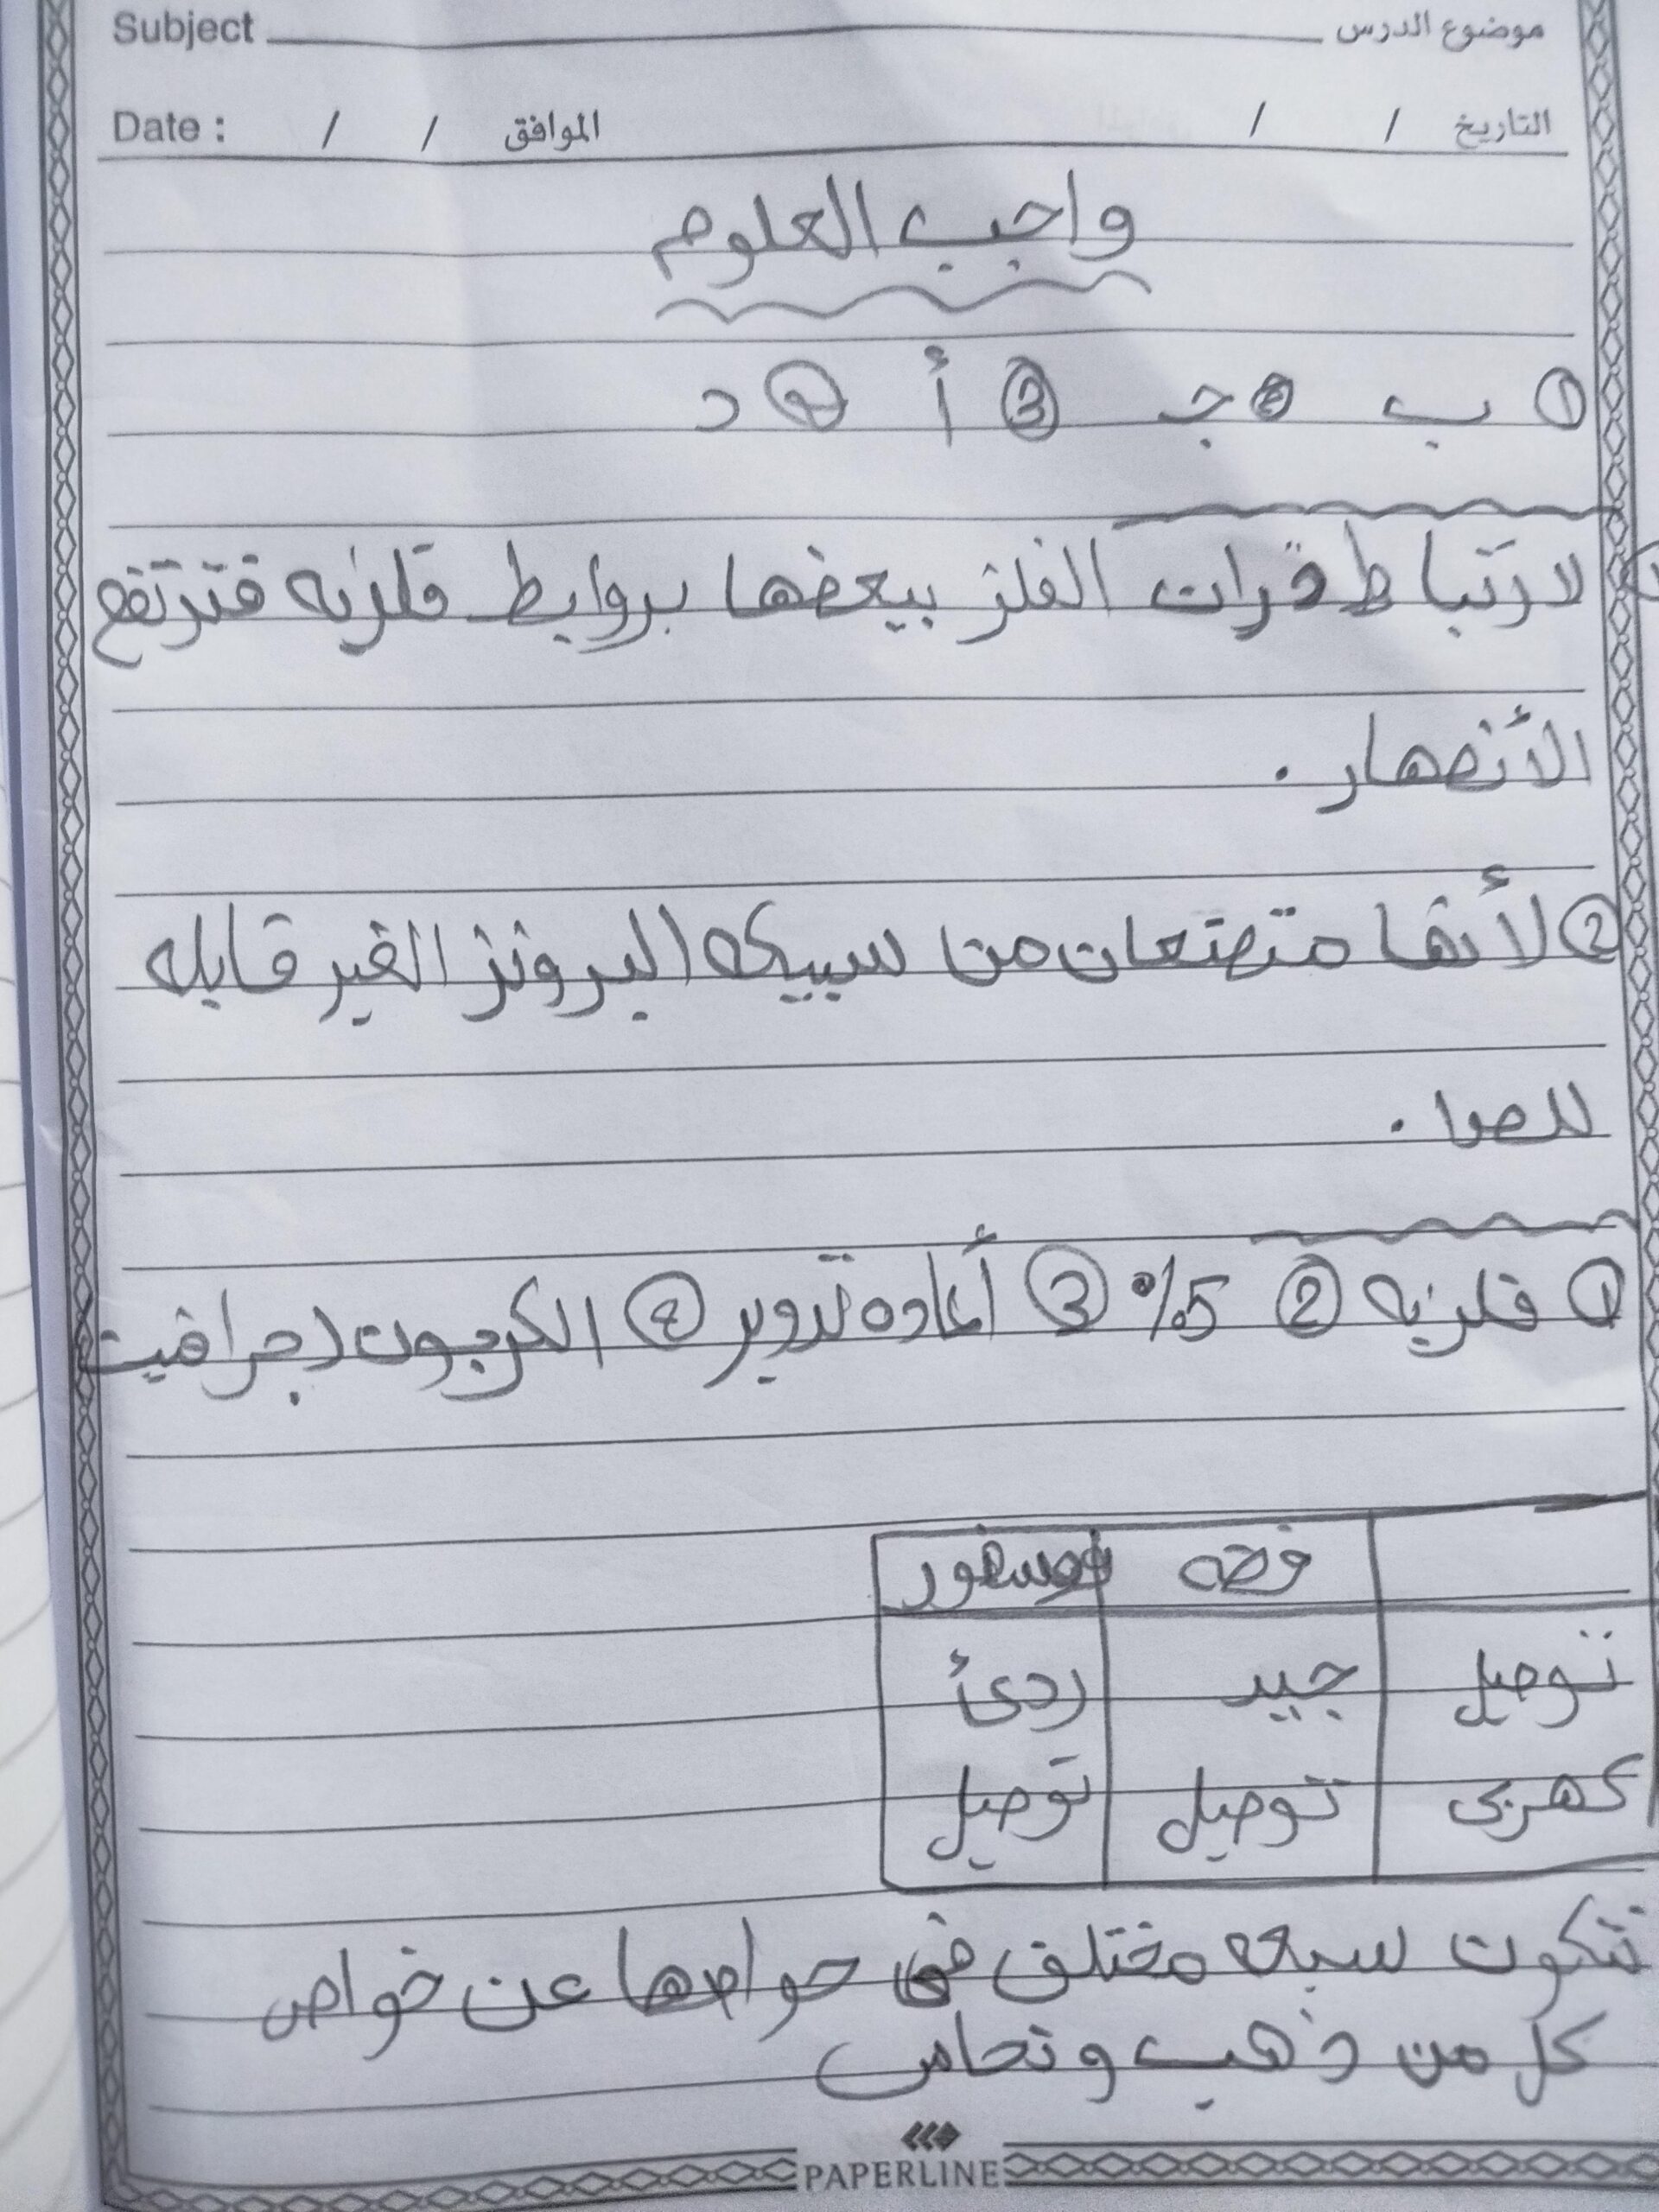 Subject موضوع الدرس
Date : / / الموافق / / التاريخ
واجب العلوم
① ب ② جـ ③ أ ④ د
لارتباط ذرات الفلز ببعضها بروابط فلزيه فترتفع
الأنصهار .
② لأنها متصتعان من سبيكه البرونز الغير قابله
للصدا .
① فلزيه ② 5% ③ أعاده تدوير ④ الكربون (جرافيت
فضه فوسفور
توصيل جييد ردئ
كهربى توصيل توصيل
تتكون سبعه مختلف فى حواصها عن خواص
كل من ذهب و نحاس
PAPERLINE